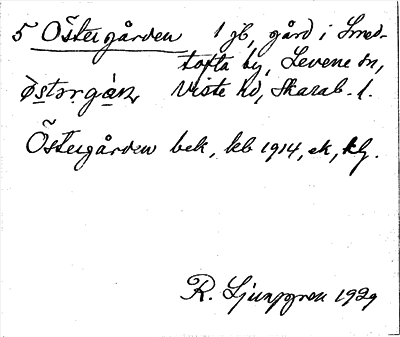 5 Östergården 1 jb, gård i Smed-
tofta by, Levene sn,
Viste hd, Skarab. l.
Östergården bek, kb 1914, ek,
R. Ljunggren 1929